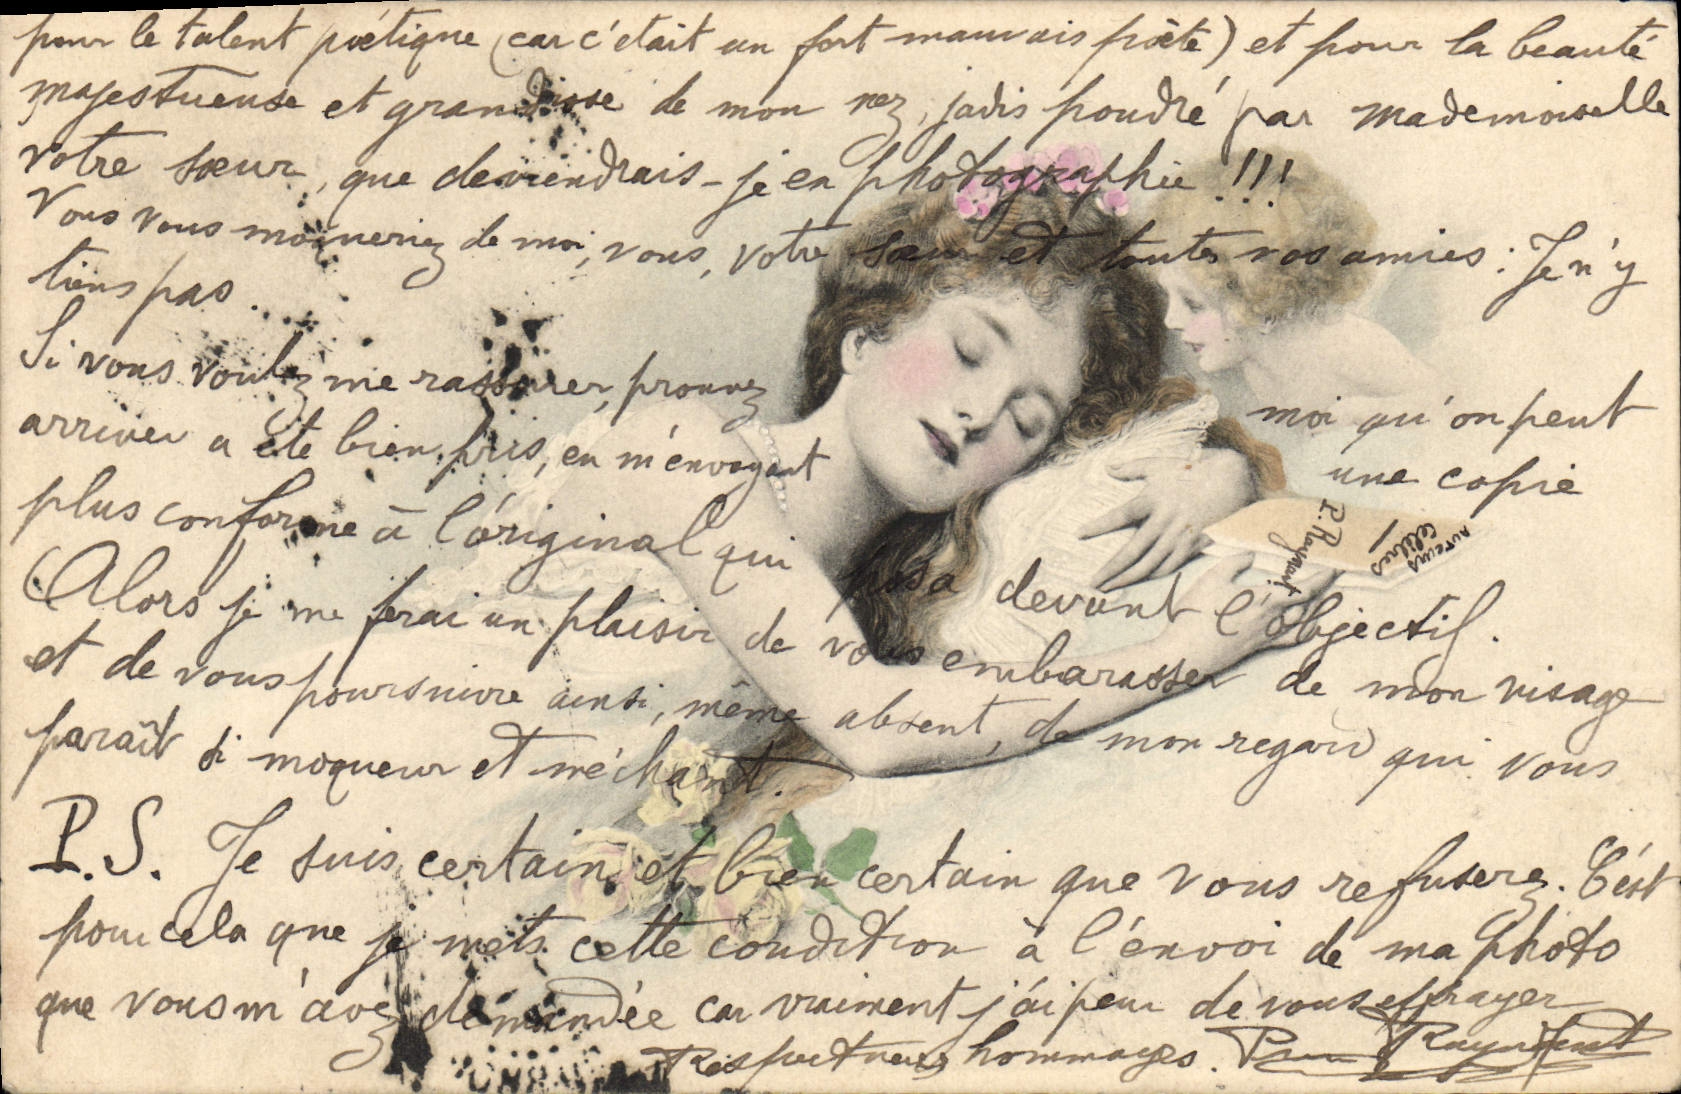 pour le talent poétique (car c'était un fort mauvais poète) et pour la beauté
majestueuse et grandiose de mon nez, jadis poudré par Mademoiselle
votre sœur, que deviendrais-je en photographie !!!
Vous vous moqueriez de moi, vous, votre sœur et toutes vos amies : Je n'y
tiens pas.
Si vous voulez me rassurer, prouvez moi qu'on peut
arriver a été bien pris, en m'envoyant une copie
plus conforme à l'original qui posa devant l'objectif.
Alors je me ferai un plaisir de vous embarasser de mon visage
et de vous poursuivre ainsi, même absent, de mon regard qui vous
paraît si moqueur et méchant.
P.S. Je suis certain et bien certain que vous refuserez. C'est
pour cela que je mets cette condition à l'envoi de ma photo
que vous m'avez demandée car vraiment j'ai peur de vous effrayer
Respectueux hommages.
P. Raynaut!
Auteurs
Célèbres